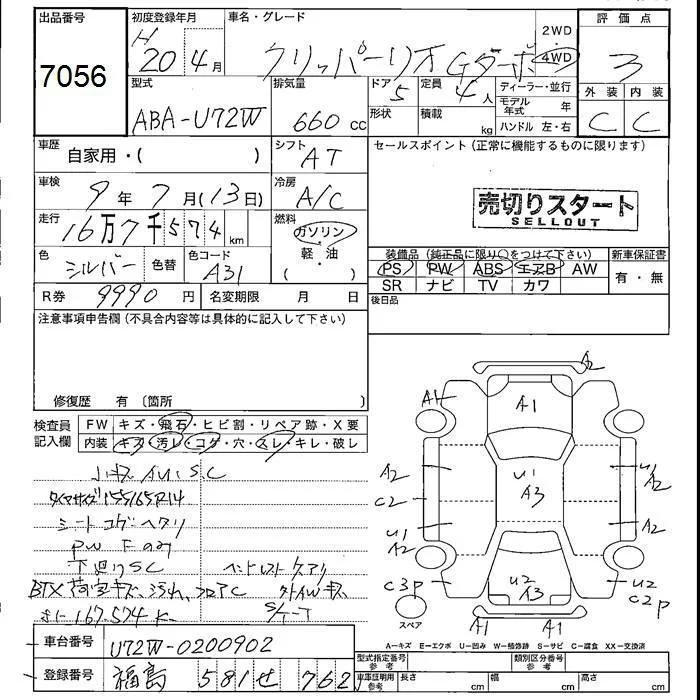 出品番号
7056
初度登録年月
H 20年 4月
車名・グレード
クリッパーリオ Gターボ
2WD
4WD
評価点
3
外装 内装
C C
型式
ABA-U72W
排気量
660 cc
ドア 5
形状
定員 4人
積載 kg
ディーラー・並行
モデル年式 年
ハンドル 左・右
車歴
自家用・( )
シフト
AT
セールスポイント(正常に機能するものに限ります)
売切りスタート
SELLOUT
車検
9年 7月(13日)
冷房
A/C
走行
16万7千574 km
燃料
ガソリン・軽・油
( )
色
シルバー
色替
色コード
A31
装備品(純正品に限り○をつけて下さい)
PS PW ABS エアB AW
SR ナビ TV カワ
新車保証書
有・無
R券 9990 円
名変期限 月 日
後日品
注意事項申告欄(不具合内容等は具体的に記入して下さい)
修復歴 有〔箇所 〕
検査員記入欄
FW キズ・飛石・ヒビ割・リペア跡・X要
内装 キズ・汚レ・コゲ・穴・スレ・キレ・破レ
小キズ AUIS.C
タイヤサイズ155/65R14
シート コゲ ヘタリ
PW F のみ
下廻りSC
BTX 荷室キズ、汚れ、フロアC
167.574 K
S/T-T
A2
A1 A1
A2 U1 A3 U1 A2
C2
U1 A2 A2
C3P U2 A3 U2 C2P
スペア
A1 A1
A-キズ E-エクボ U-凹み W-補修跡 S-サビ C-腐食 XX-交換済
車台番号
U72W-0200902
登録番号
福島 581 せ 762
型式指定番号 参考
類別区分番号 参考
車庫証明用 参考
長さ cm 幅 cm 高さ cm